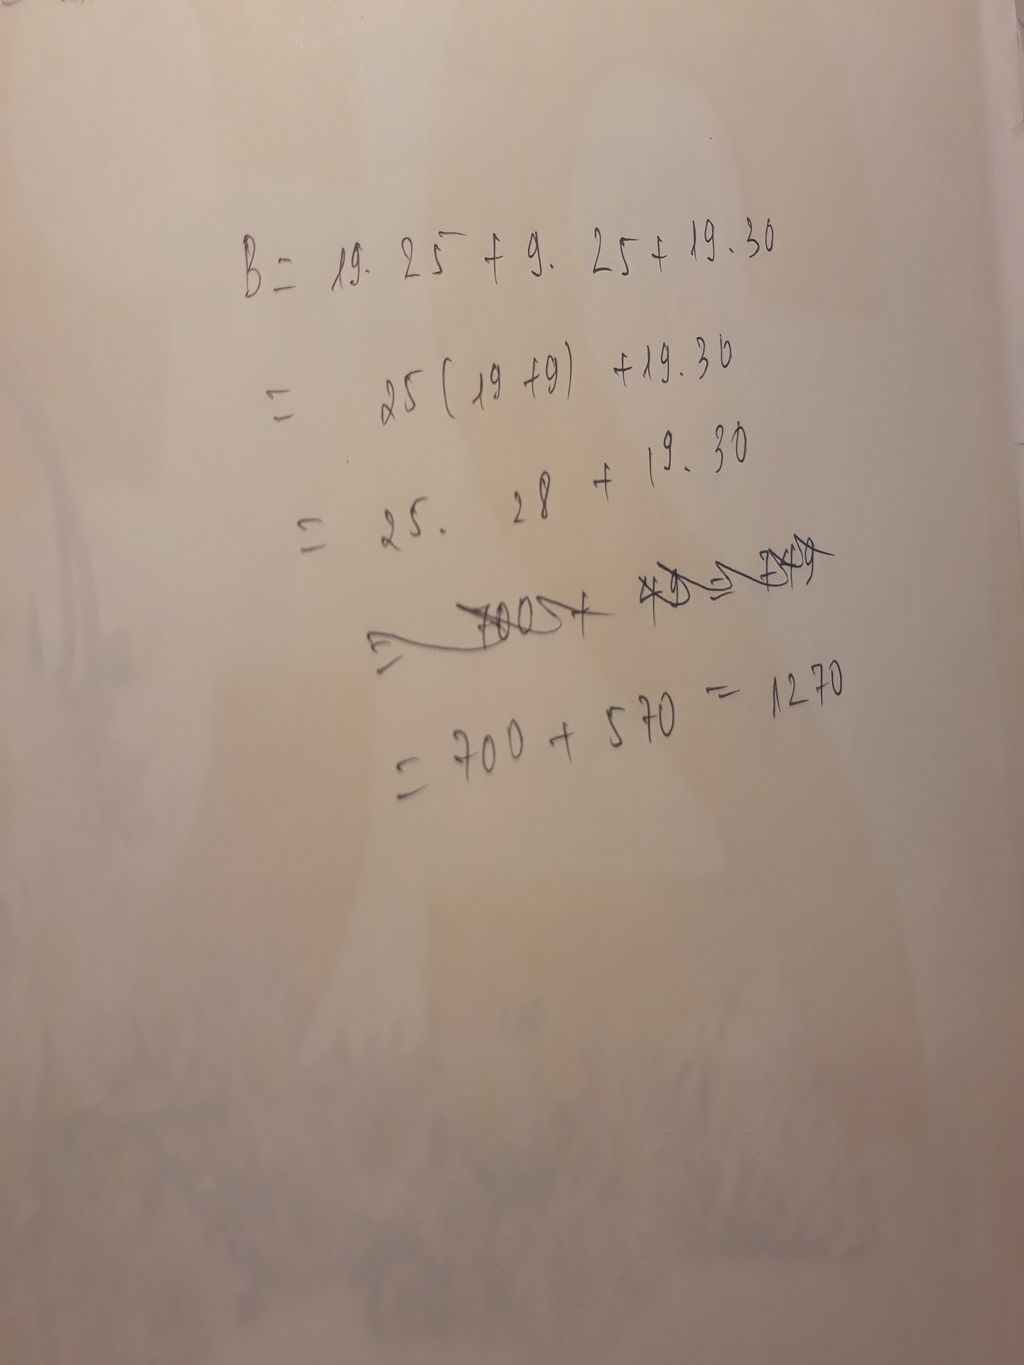 B = 19. 25 + 9. 25 + 19.30
= 25 ( 19 + 9) + 19.30
= 25. 28 + 19. 30
= 700 + 49 = 749
= 700 + 570 = 1270